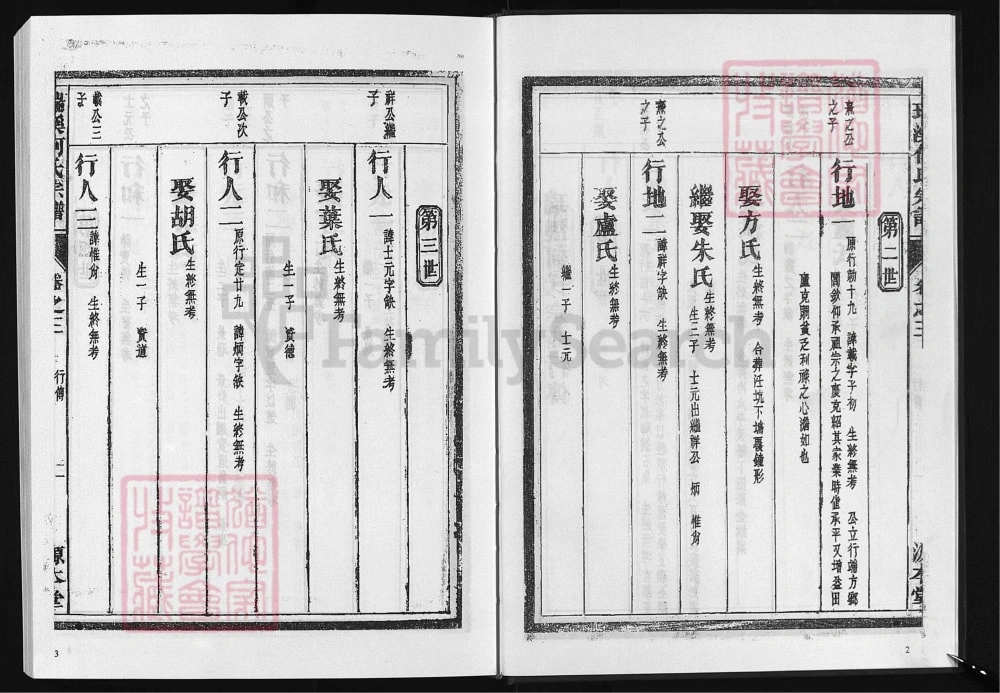 第二世
熹之公
之子
行地一
原行勛十九 諱載字子初 生終無考 公立行端方鄉
閭欽仰承祖宗之慶克紹其家業時値承平又增益田
廬克關貧乏利祿之心澹如也
娶方氏
生終無考 合葬汪坑下塘覆鐘形
繼娶朱氏
生終無考
生三子 士元出繼祥公 炯 惟肖
熹之公
之子
行地二
諱祥字缺 生終無考
娶盧氏
生終無考
繼一子 士元
2
第三世
祥公繼
子
行人一
諱士元字缺 生終無考
娶葉氏
生終無考
生一子 資德
載公次
子
行人二
原行定廿九 諱炯字缺 生終無考
娶胡氏
生終無考
生一子 資道
載公三
子
行人三
諱惟肖 生終無考
瑞溪何氏宗譜
卷之三 行傳 二
源本堂
3
FamilySearch